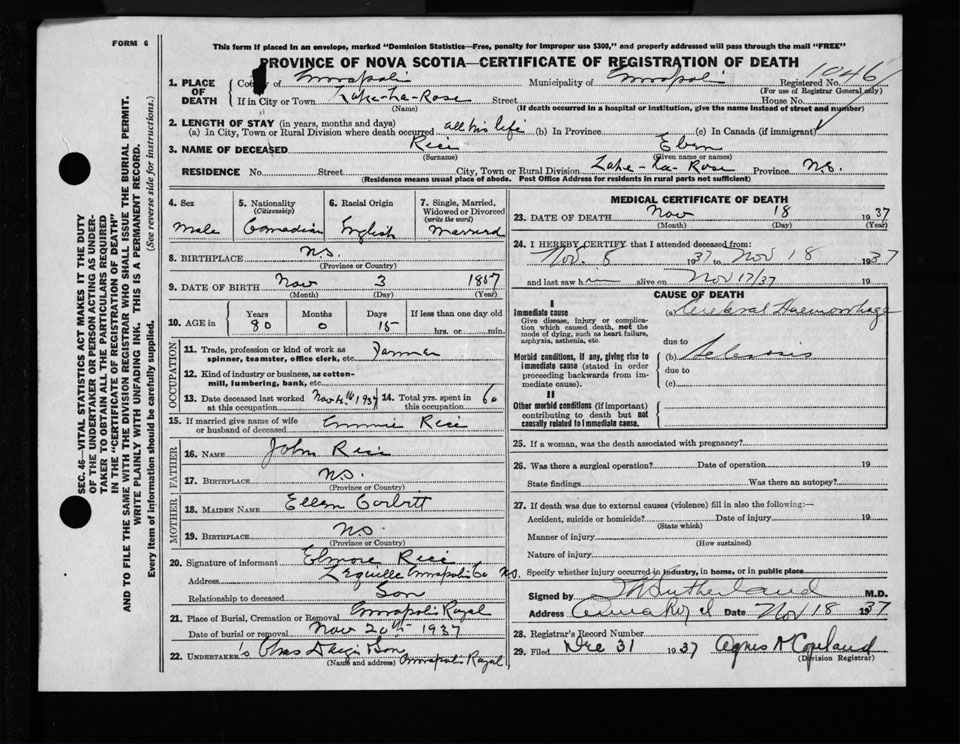 FORM 6
This form if placed in an envelope, marked "Dominion Statistics—Free, penalty for improper use $300," and properly addressed will pass through the mail "FREE"
PROVINCE OF NOVA SCOTIA—CERTIFICATE OF REGISTRATION OF DEATH
1. PLACE OF DEATH County of Annapolis Municipality of Annapolis Registered No. 1046
(For use of Registrar General only)
If in City or Town Lake-La-Rose Street House No.
(Name) (If death occurred in a hospital or institution, give the name instead of street and number)
2. LENGTH OF STAY (in years, months and days)
(a) In City, Town or Rural Division where death occurred all his life (b) In Province (c) In Canada (if immigrant)
3. NAME OF DECEASED Rice Eben
(Surname) (Given name or names)
RESIDENCE No. Street City, Town or Rural Division Lake-La-Rose Province N.S.
(Residence means usual place of abode. Post Office Address for residents in rural parts not sufficient)
4. Sex 5. Nationality (Citizenship) 6. Racial Origin 7. Single, Married, Widowed or Divorced (write the word)
Male Canadian English Married
8. BIRTHPLACE N.S.
(Province or Country)
9. DATE OF BIRTH Nov 3 1857
(Month) (Day) (Year)
10. AGE in Years Months Days If less than one day old
80 0 15 hrs. or min.
OCCUPATION
11. Trade, profession or kind of work as spinner, teamster, office clerk, etc. Farmer
12. Kind of industry or business, as cotton-mill, lumbering, bank, etc.
13. Date deceased last worked at this occupation Nov 4th 1937 14. Total yrs. spent in this occupation 60
15. If married give name of wife or husband of deceased Emmie Rice
FATHER
16. NAME John Rice
17. BIRTHPLACE N.S.
(Province or Country)
MOTHER
18. MAIDEN NAME Ellen Corbitt
19. BIRTHPLACE N.S.
(Province or Country)
20. Signature of informant Elmore Rice
Address Lequille Annapolis Co N.S.
Relationship to deceased Son
21. Place of Burial, Cremation or Removal Annapolis Royal
Date of burial or removal Nov 20th 1937
22. UNDERTAKER's Chas & Son
(Name and address) Annapolis Royal
MEDICAL CERTIFICATE OF DEATH
23. DATE OF DEATH Nov 18 1937
(Month) (Day) (Year)
24. I HEREBY CERTIFY that I attended deceased from:
Nov. 8 1937 to Nov 18 1937
and last saw him alive on Nov 17/37 19
CAUSE OF DEATH
I
Immediate cause (a) Cerebral Haemorrhage
Give disease, injury or complication which caused death, not the mode of dying, such as heart failure, asphyxia, asthenia, etc.
due to
Morbid conditions, if any, giving rise to immediate cause (stated in order proceeding backwards from immediate cause). (b) Sclerosis
due to
(c)
II
Other morbid conditions (if important) contributing to death but not causally related to immediate cause.
25. If a woman, was the death associated with pregnancy?
26. Was there a surgical operation? Date of operation 19
State findings Was there an autopsy?
27. If death was due to external causes (violence) fill in also the following:—
Accident, suicide or homicide? Date of injury 19
(State which)
Manner of injury
(How sustained)
Nature of injury
Specify whether injury occurred in industry, in home, or in public place
Signed by Sutherland M.D.
Address Anna Royal Date Nov 18 1937
28. Registrar's Record Number
29. Filed Dec 31 1937 Agnes A Copeland
(Division Registrar)
SEC. 46—VITAL STATISTICS ACT MAKES IT THE DUTY
OF THE UNDERTAKER OR PERSON ACTING AS UNDER-
TAKER TO OBTAIN ALL THE PARTICULARS REQUIRED
IN THE "CERTIFICATE OF REGISTRATION OF DEATH"
AND TO FILE THE SAME WITH THE DIVISION REGISTRAR WHO SHALL ISSUE THE BURIAL PERMIT.
WRITE PLAINLY WITH UNFADING INK. THIS IS A PERMANENT RECORD.
Every item of information should be carefully supplied. (See reverse side for instructions.)